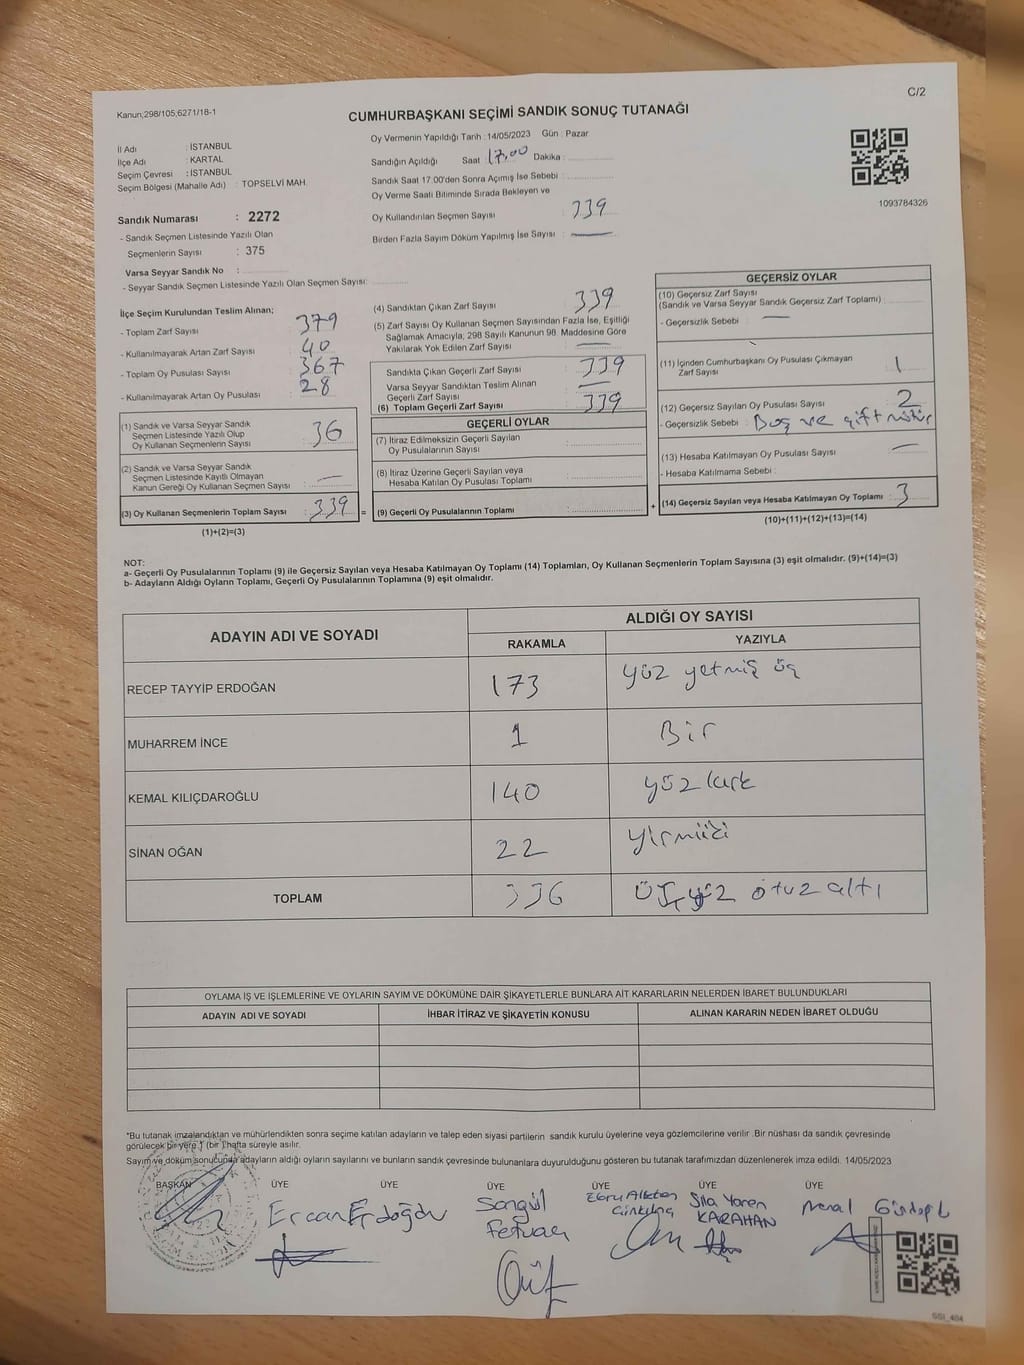 Kanun;298/105,6271/18-1
C/2
CUMHURBAŞKANI SEÇİMİ SANDIK SONUÇ TUTANAĞI
İl Adı : İSTANBUL
İlçe Adı : KARTAL
Seçim Çevresi : İSTANBUL
Seçim Bölgesi (Mahalle Adı) : TOPSELVİ MAH.
Sandık Numarası : 2272
- Sandık Seçmen Listesinde Yazılı Olan
Seçmenlerin Sayısı : 375
Varsa Seyyar Sandık No :
- Seyyar Sandık Seçmen Listesinde Yazılı Olan Seçmen Sayısı:
Oy Vermenin Yapıldığı Tarih :14/05/2023 Gün : Pazar
Sandığın Açıldığı Saat 17,00 Dakika :
Sandık Saat 17.00'den Sonra Açımış İse Sebebi :
Oy Verme Saati Bitiminde Sırada Bekleyen ve
Oy Kullandırılan Seçmen Sayısı : 339
Birden Fazla Sayım Döküm Yapılmış İse Sayısı : —
1093784326
İlçe Seçim Kurulundan Teslim Alınan;
- Toplam Zarf Sayısı : 379
- Kullanılmayarak Artan Zarf Sayısı : 40
- Toplam Oy Pusulası Sayısı : 367
- Kullanılmayarak Artan Oy Pusulası : 28
(1) Sandık ve Varsa Seyyar Sandık
Seçmen Listesinde Yazılı Olup
Oy Kullanan Seçmenlerin Sayısı : 36
(2) Sandık ve Varsa Seyyar Sandık
Seçmen Listesinde Kayıtlı Olmayan
Kanun Gereği Oy Kullanan Seçmen Sayısı : —
(3) Oy Kullanan Seçmenlerin Toplam Sayısı : 339
(1)+(2)=(3)
(4) Sandıktan Çıkan Zarf Sayısı : 339
(5) Zarf Sayısı Oy Kullanan Seçmen Sayısından Fazla İse, Eşitliği
Sağlamak Amacıyla, 298 Sayılı Kanunun 98. Maddesine Göre
Yakılarak Yok Edilen Zarf Sayısı : —
Sandıkta Çıkan Geçerli Zarf Sayısı : 339
Varsa Seyyar Sandıktan Teslim Alınan
Geçerli Zarf Sayısı : —
(6) Toplam Geçerli Zarf Sayısı : 339
GEÇERLİ OYLAR
(7) İtiraz Edilmeksizin Geçerli Sayılan
Oy Pusulalarının Sayısı :
(8) İtiraz Üzerine Geçerli Sayılan veya
Hesaba Katılan Oy Pusulası Toplamı :
= (9) Geçerli Oy Pusulalarının Toplamı : +
GEÇERSİZ OYLAR
(10) Geçersiz Zarf Sayısı
(Sandık ve Varsa Seyyar Sandık Geçersiz Zarf Toplamı)
- Geçersizlik Sebebi : —
(11) İçinden Cumhurbaşkanı Oy Pusulası Çıkmayan
Zarf Sayısı : 1
(12) Geçersiz Sayılan Oy Pusulası Sayısı : 2
- Geçersizlik Sebebi : Boş ve çift mühür
(13) Hesaba Katılmayan Oy Pusulası Sayısı : —
- Hesaba Katılmama Sebebi :
(14) Geçersiz Sayılan veya Hesaba Katılmayan Oy Toplamı : 3
(10)+(11)+(12)+(13)=(14)
NOT:
a- Geçerli Oy Pusulalarının Toplamı (9) ile Geçersiz Sayılan veya Hesaba Katılmayan Oy Toplamı (14) Toplamları, Oy Kullanan Seçmenlerin Toplam Sayısına (3) eşit olmalıdır. (9)+(14)=(3)
b- Adayların Aldığı Oyların Toplamı, Geçerli Oy Pusulalarının Toplamına (9) eşit olmalıdır.
ADAYIN ADI VE SOYADI
ALDIĞI OY SAYISI
RAKAMLA YAZIYLA
RECEP TAYYİP ERDOĞAN 173 yüz yetmiş üç
MUHARREM İNCE 1 Bir
KEMAL KILIÇDAROĞLU 140 yüz kırk
SİNAN OĞAN 22 yirmiiki
TOPLAM 336 üçyüz otuz altı
OYLAMA İŞ VE İŞLEMLERİNE VE OYLARIN SAYIM VE DÖKÜMÜNE DAİR ŞİKAYETLERLE BUNLARA AİT KARARLARIN NELERDEN İBARET BULUNDUKLARI
ADAYIN ADI VE SOYADI İHBAR İTİRAZ VE ŞİKAYETİN KONUSU ALINAN KARARIN NEDEN İBARET OLDUĞU
*Bu tutanak imzalandıktan ve mühürlendikten sonra seçime katılan adayların ve talep eden siyasi partilerin sandık kurulu üyelerine veya gözlemcilerine verilir .Bir nüshası da sandık çevresinde
görülecek bir yere 1 (bir ) hafta süreyle asılır.
Sayım ve döküm sonucunda adayların aldığı oyların sayılarını ve bunların sandık çevresinde bulunanlara duyurulduğunu gösteren bu tutanak tarafımızdan düzenlenerek imza edildi. 14/05/2023
BAŞKAN ÜYE ÜYE ÜYE ÜYE ÜYE ÜYE
Ercan Erdoğdu
Songül
Ebru
Sıla Yaren
KARAHAN
Meral
SSI_404